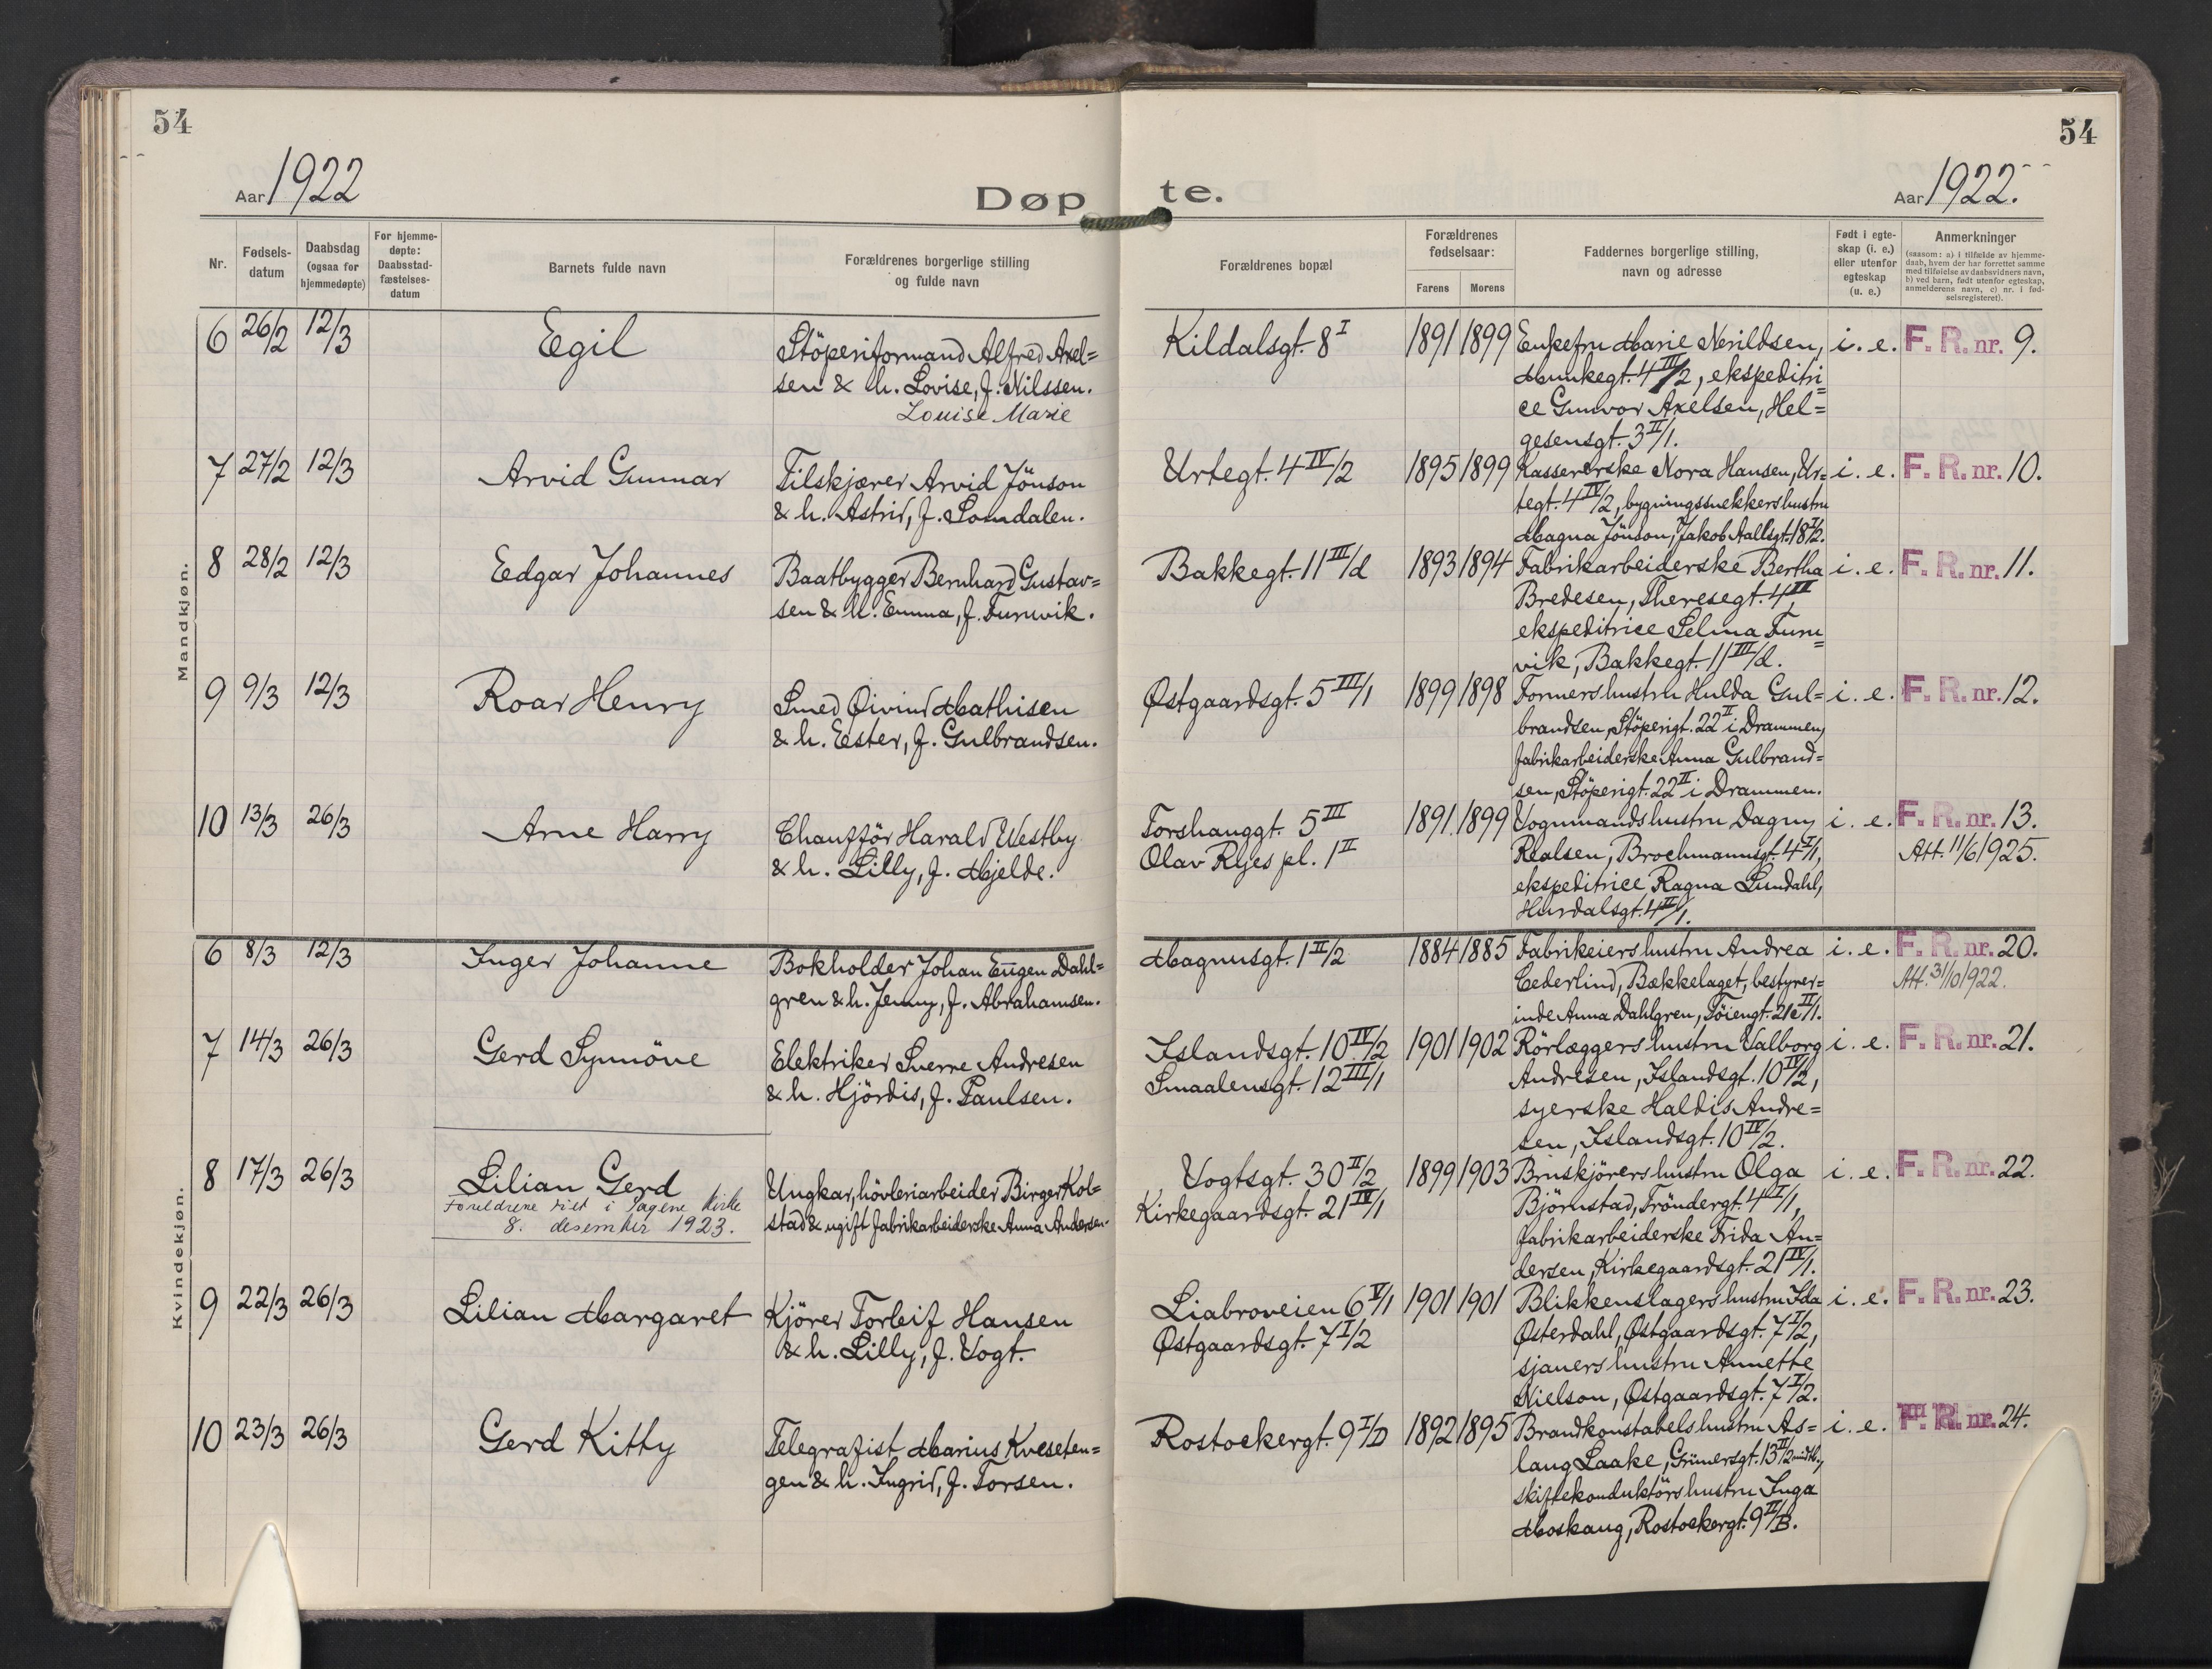 54
54
Aar 1922
Døpte.
Aar 1922.
Nr.
Fødsels-
datum
Daabsdag
(ogsaa for
hjemmedøpte)
For hjemme-
døpte:
Daabsstad-
fæstelses-
datum
Barnets fulde navn
Forældrenes borgerlige stilling
og fulde navn
Forældrenes bopæl
Forældrenes
fødselsaar:
Farens
Morens
Faddernes borgerlige stilling,
navn og adresse
Født i egte-
skap (i. e.)
eller utenfor
egteskap
(u. e.)
Anmerkninger
(saasom: a) i tilfælde av hjemme-
daab, hvem der har forrettet samme
med tilføielse av daabsvidners navn,
b) ved barn, født utenfor egteskap,
anmelderens navn, c) nr. i fød-
selsregisteret).
Mandkjøn.
6 26/2 12/3 Egil
Støperiformand Alfred Axel=
sen & h. Lovise, f. Nilssen.
Louise Marie
Kildalsgt. 8 I
1891 1899
Enkefru Marie Nerildsen,
Munkegt. 4 III/2, ekspeditri=
ce Gunvor Axelsen, Hel=
gesensgt. 3 II/1.
i. e. F. R. nr. 9.
7 27/2 12/3 Arvid Gunnar
Filskjærer Arvid Jönson
& h. Astrid, f. Somdalen.
Urtegt. 4 IV/2
1895 1899
Kassererske Nora Hansen, Ur=
tegt. 4 IV/2, bygningssnekkershustru
Magna Jönson, Jakob Aallsgt. 18 I/2.
i. e. F. R. nr. 10.
8 28/2 12/3 Edgar Johannes
Baatbygger Bernhard Gustav=
sen & h. Emma, f. Furuvik.
Bakkegt. 11 III/d
1893 1894
Fabrikarbeiderske Bertha
Bredesen, Theresegt. 4 III,
ekspeditrice Selma Furu=
vik, Bakkegt. 11 III/d.
i. e. F. R. nr. 11.
9 9/3 12/3 Roar Henry
Smed Øivind Mathisen
& h. Ester, f. Gulbrandsen.
Østgaardsgt. 5 III/1
1899 1898
Formershustru Hulda Gul=
brandsen, Støperigt. 22 II i Drammen,
fabrikarbeiderske Anna Gulbrand=
sen, Støperigt. 22 II i Drammen.
i. e. F. R. nr. 12.
10 13/3 26/3 Arne Harry
Chaufför Harald Westby
& h. Lilly, f. Mjelde.
Torshauggt. 5 III
Olav Ryes pl. 1 II
1891. 1899
Vognmandshustru Dagny
Realsen, Brochmannsgt. 4 I/1,
ekspeditrice Ragna Lundahl,
Hurdalsgt. 4 II/1.
i. e. F. R. nr. 13.
Att. 11/6 1925.
Kvindekjøn.
6 8/3 12/3 Inger Johanne
Bokholder Johan Eugen Dahl=
gren & h. Jenny, f. Abrahamsen.
Magnusgt. 1 II/2
1884 1885
Fabrikeiershustru Andrea
Cederlind, Bækkelaget, bestyrer=
inde Anna Dahlgren, Töiengt. 21c II/1.
i. e. F. R. nr. 20.
Att. 31/10 1922.
7 14/3 26/3 Gerd Synnöve
Elektriker Sverre Andresen
& h. Hjördis, f. Paulsen.
Islandsgt. 10 IV/2
Smaalensgt. 12 III/1
1901 1902
Rörlæggershustru Valborg
Andresen, Islandsgt. 10 IV/2,
syerske Haldis Andre=
sen, Islandsgt. 10 IV/2.
i. e. F. R. nr. 21.
8 17/3 26/3 Lilian Gerd
Foreldrene viet i Pagene Kirke
8. desember 1923.
Ungkar, hövleriarbeider Birger Kol=
stad & ugift fabrikarbeiderske Anna Andersen.
Vogtsgt. 30 II/2
Kirkegaardsgt. 21 IV/1
1899 1903
Bruskjörershustru Olga
Björnstad, Tröndergt. 4 I/1,
fabrikarbeiderske Frida An=
dersen, Kirkegaardsgt. 21 IV/1.
i. e. F. R. nr. 22.
9 22/3 26/3 Lilian Margaret
Kjörer Torleif Hansen
& h. Lilly, f. Vogt.
Liabroveien 6 V/1
Østgaardsgt. 7 I/2
1901 1901
Blikkenslagershustru Ida
Østerdahl, Østgaardsgt. 7 I/2,
sjauershustru Annette
Nielson, Østgaardsgt. 7 I/2.
i. e. F. R. nr. 23.
10 23/3 26/3 Gerd Kitty
Telegrafist Marius Kveseten=
gen & h. Ingrid, f. Torsen.
Rostockergt. 9 I/D
1892 1895
Brandkonstabelshustru As=
laug Laake, Grünersgt. 13 II/2 midtb.,
skiftekonduktörshustru Inga
Moskaug, Rostockergt. 9 II/B.
i. e. F. R. nr. 24.